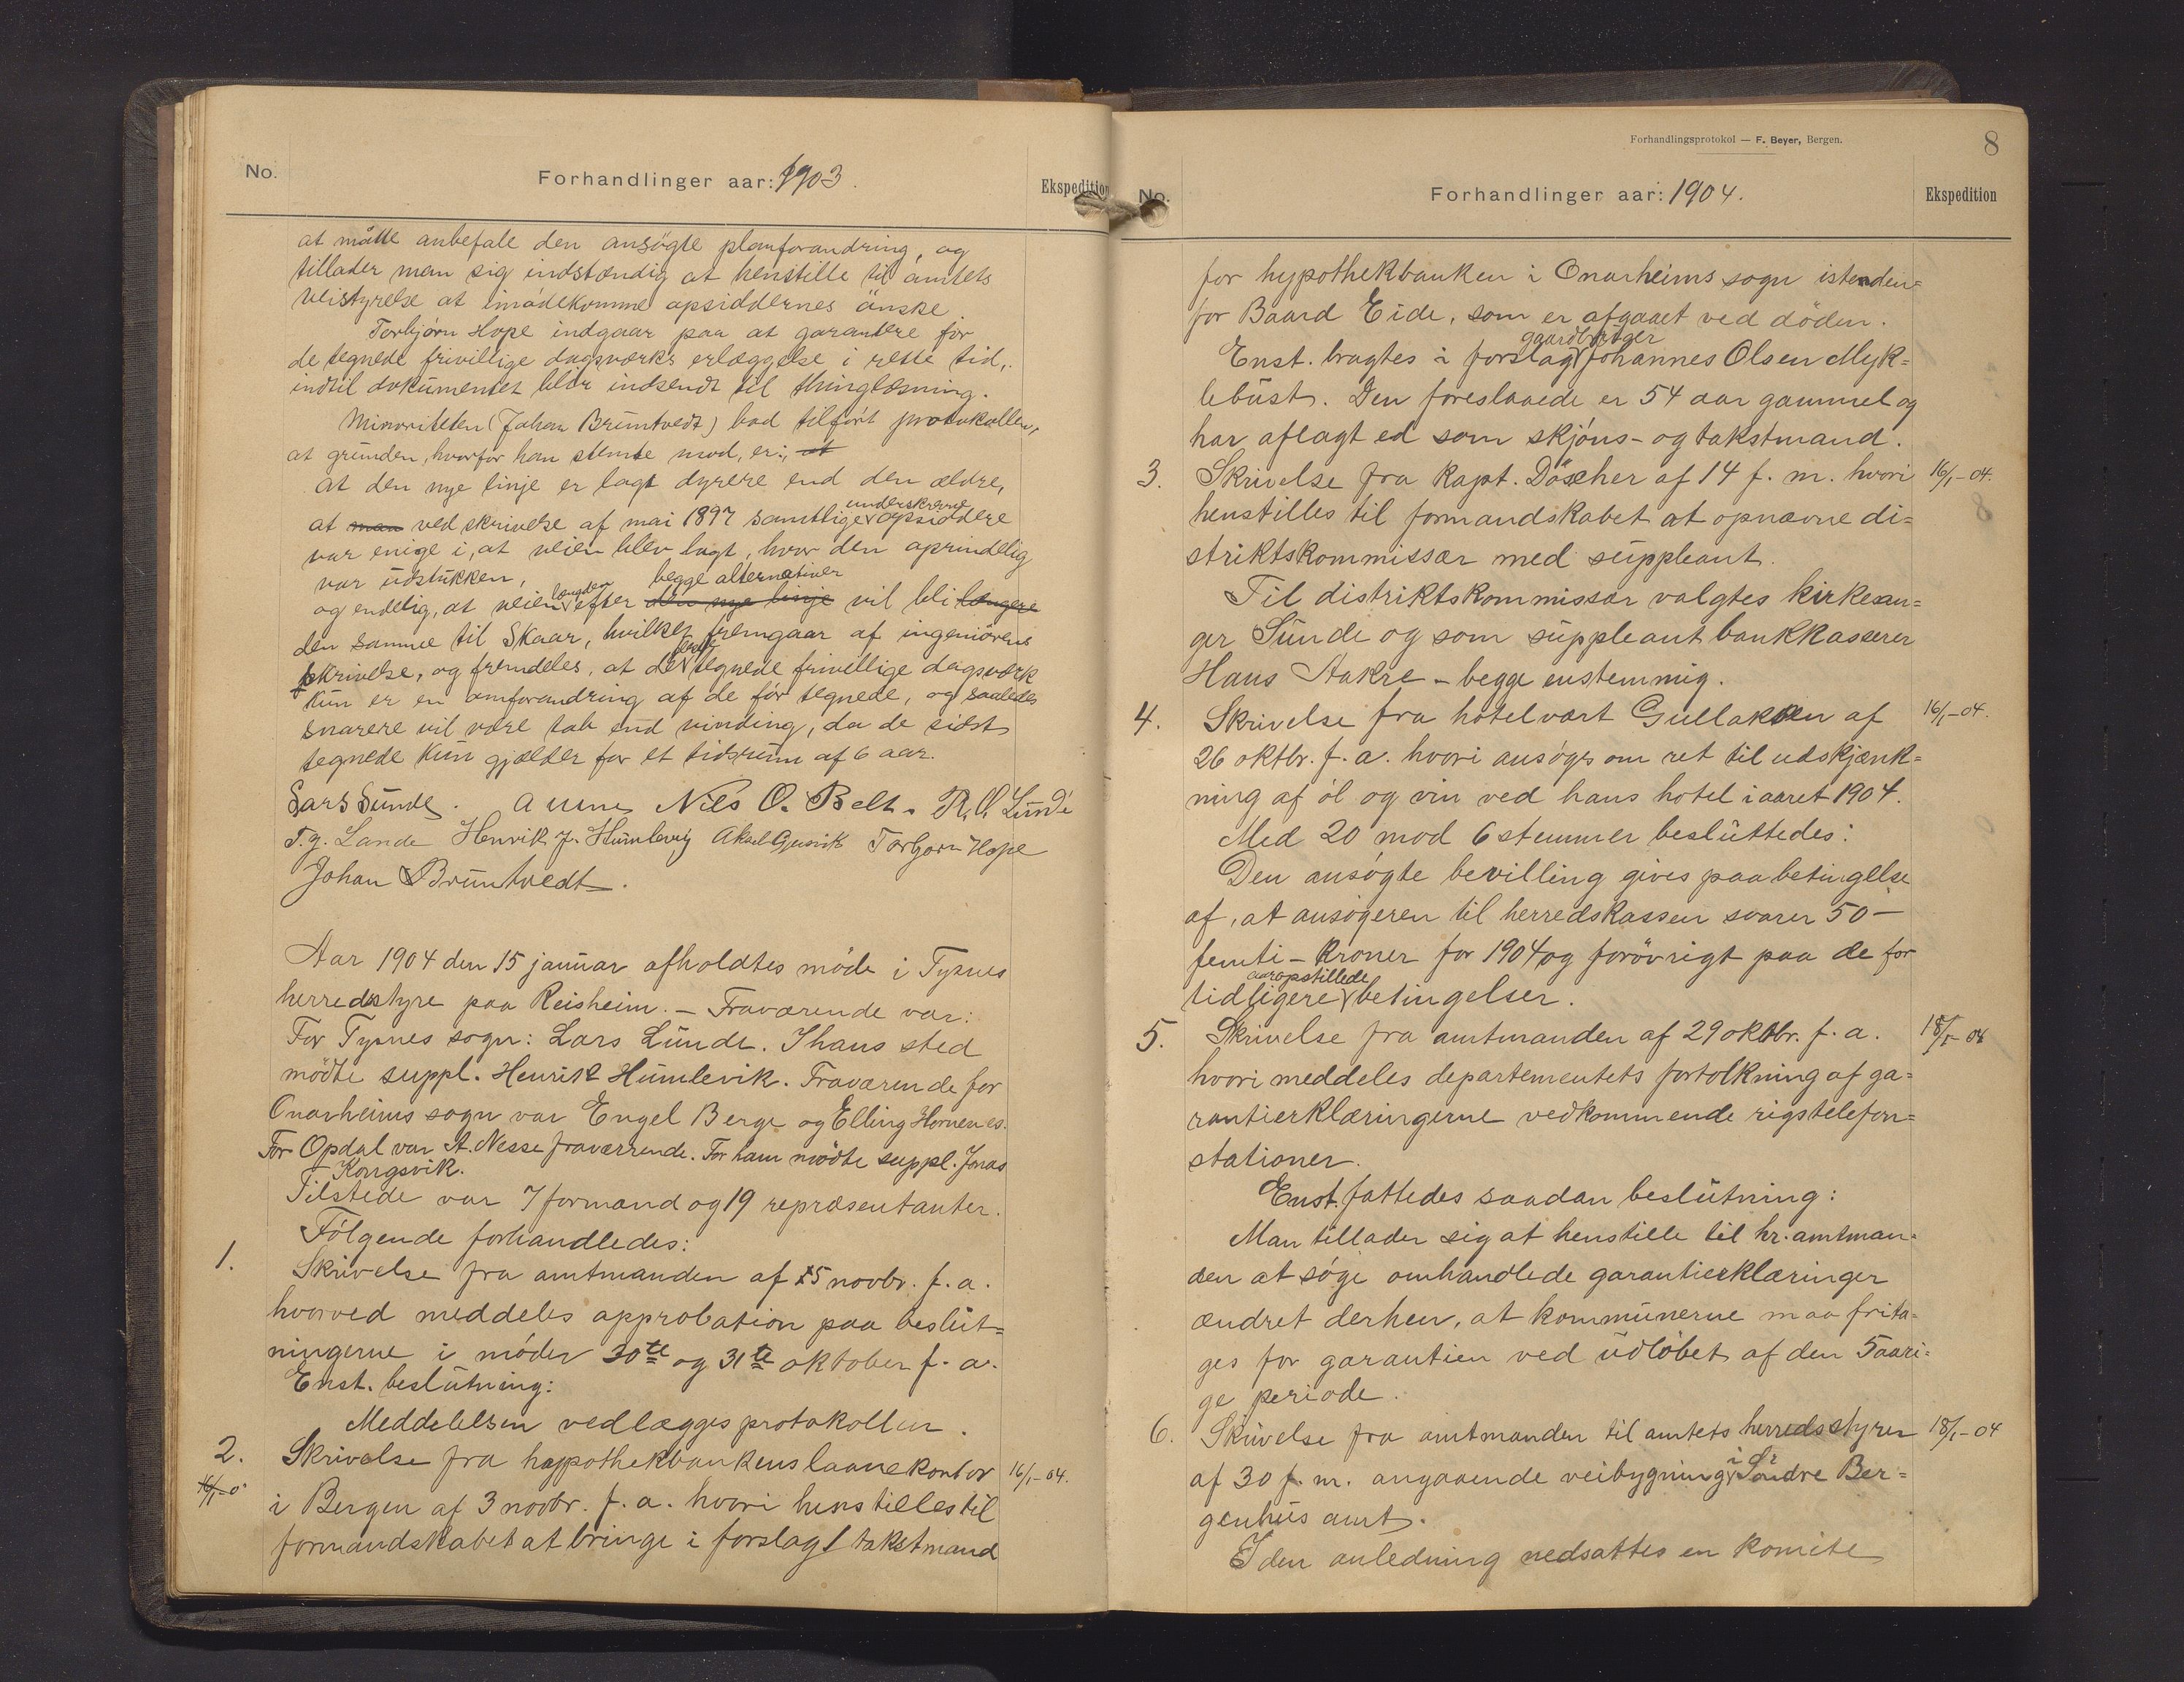 No.
Forhandlinger aar: 1903.
Ekspedition
at måtte anbefale den ansögte planforandring, og
tillader man sig indstændig at henstille til amtets
veistyrelse at imödekomme opsiddernes önske
Torbjørn Hope indgaar paa at garantere for
de tegnede frivillige dagsværks erlæggelse i rette tid,
indtil dokumentet blir indsendt til thinglæsning.
Minoriteten (Johan Bruntvedt) bad tilført protokollen,
at grunden, hvorfor han stemte mod, er: at
at den nye linje er lagt dyrere end den ældre,
at man ved skrivelse af mai 1897 samtlige underskrevne opsiddere
var enige i, at veien blev lagt, hvor den oprindelig
var udstukken,
og endelig, at veien længden efter den nye linje begge alternativer vil bli længere
den samme til Skaar, hvilket fremgaar af ingeniörens
skrivelse, og fremdeles, at de tegnede frivillige dagsværk
kun er en omforandring af de før tegnede, og saaledes
snarere vil være tab end vinding, da de sidst
tegnede kun gjælder for et tidsrum af 6 aar.
Lars Sunde. Nils O. Belt. R. O. Lunde
T. g. Lande Henrik J. Humlevig Aksel Gjersvik Torbjørn Hope
Johan Bruntvedt.
Aar 1904 den 15 januar afholdtes möde i Tysnes
herredstyre paa Reisheim. – Fraværende var:
For Tysnes sogn: Lars Lunde. I hans sted
mödte suppl. Henrik Humlevik. Fraværende for
Onarheims sogn var Engel Berge og Elling Hornenes.
For Opdal var A. Nesse fraværrende. For ham mödte suppl. Jonas
Kongsvik.
Tilstede var 7 formænd og 19 repræsentanter.
Følgende forhandledes:
1.
Skrivelse fra amtmanden af 15 novbr. f. a.
hvorved meddeles approbation paa beslut=
ningerne i møder 30te og 31te oktober f. a.
Enst. beslutning:
Meddelelsen vedlægges protokollen.
2.
Skrivelse fra hyppothekbankens laanekontor 16/1-04.
16/1-0
i Bergen af 3 novbr. f. a. hvori henstilles til
formandskabet at bringe i forslag 1 takstmand
Forhandlingsprotokol — F. Beyer, Bergen.
8
No.
Forhandlinger aar: 1904.
Ekspedition
for hypothekbanken i Onarheims sogn istenden=
for Baard Eide, som er afgaaet ved döden.
Enst. bragtes i forslag gaardbruger Johannes Olsen Myk=
lebust. Den foreslaaede er 54 aar gammel og
har aflagt ed som skjøns- og takstmand.
3. Skrivelse fra kapt. Döscher af 14 f. m. hvori 16/1-04.
henstilles til formandskabet at opnævne di=
striktskommissær med suppleant.
Til distriktskommissær valgtes kirkesan=
ger Sunde og som suppleant bankkasserer
Hans Aakre – begge enstemmig.
4. Skrivelse fra hotelvært Gullaksen af 16/1-04.
26 oktbr. f. a. hvori ansøges om ret til udskjænk=
ning af øl og vin ved hans hotel i aaret 1904.
Med 20 mod 6 stemmer besluttedes:
Den ansøgte bevilling gives paa betingelse
af, at ansøgeren til herredskassen svarer 50 –
femti – kroner for 1904 og forövrigt paa de for
tidligere aar opstillede betingelser.
5. Skrivelse fra amtmanden af 29 oktbr. f. a. 18/1-04
hvori meddeles departementets fortolkning af ga=
rantierklæringerne vedkommende rigstelefon=
stationer.
Enst. fattedes saadan beslutning:
Man tillader sig at henstille til hr. amtman=
den at søge omhandlede garantierklæringer
ændret derhen, at kommunerne maa frita=
ges for garantien ved udløbet af den 5 aari=
ge periode.
6. Skrivelse fra amtmanden til amtets herredsstyrer 18/1-04
af 30 f. m. angaaende veibygning i Söndre Ber=
genhus amt.
I den anledning nedsattes en komite